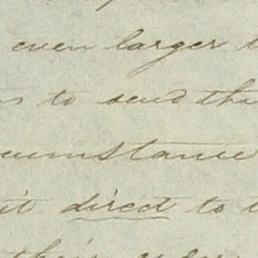 even larger
to send the
cumstance
it direct to
their